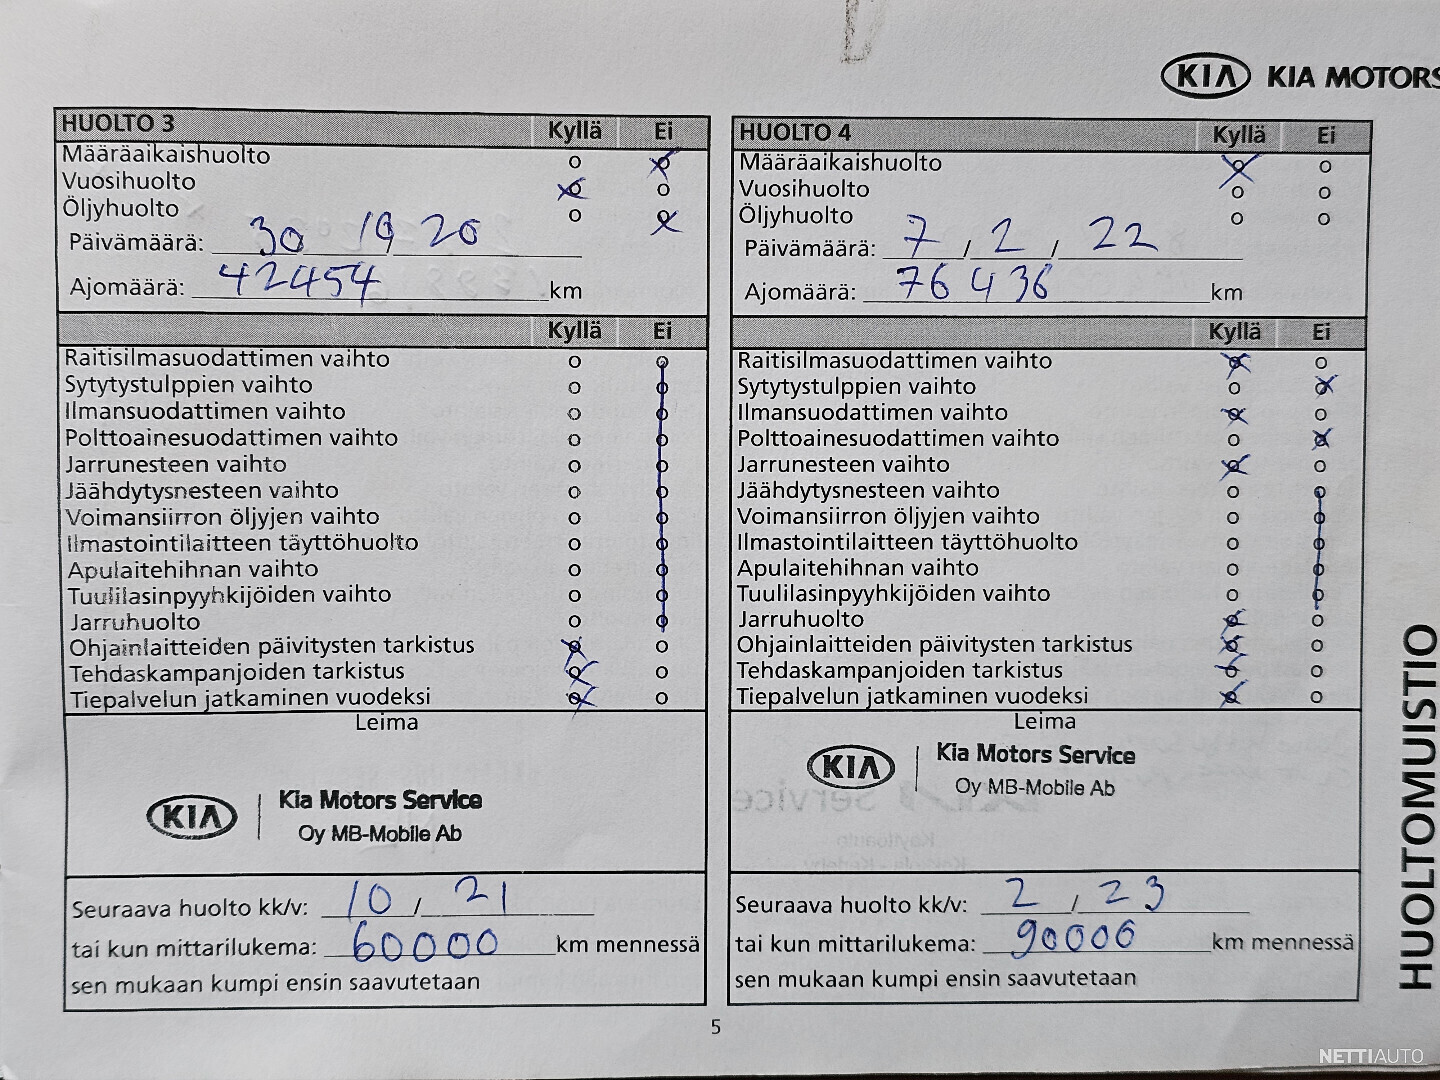 KIA KIA MOTORS
HUOLTO 3 Kyllä Ei
Määräaikaishuolto o o
Vuosihuolto o o
Öljyhuolto o o
Päivämäärä: 30 / 9 / 20
Ajomäärä: 42454 km
Kyllä Ei
Raitisilmasuodattimen vaihto o o
Sytytystulppien vaihto o o
Ilmansuodattimen vaihto o o
Polttoainesuodattimen vaihto o o
Jarrunesteen vaihto o o
Jäähdytysnesteen vaihto o o
Voimansiirron öljyjen vaihto o o
Ilmastointilaitteen täyttöhuolto o o
Apulaitehihnan vaihto o o
Tuulilasinpyyhkijöiden vaihto o o
Jarruhuolto o o
Ohjainlaitteiden päivitysten tarkistus o o
Tehdaskampanjoiden tarkistus o o
Tiepalvelun jatkaminen vuodeksi o o
Leima
KIA Kia Motors Service
Oy MB-Mobile Ab
Seuraava huolto kk/v: 10 / 21
tai kun mittarilukema: 60000 km mennessä
sen mukaan kumpi ensin saavutetaan
HUOLTO 4 Kyllä Ei
Määräaikaishuolto o o
Vuosihuolto o o
Öljyhuolto o o
Päivämäärä: 7 / 2 / 22
Ajomäärä: 76436 km
Kyllä Ei
Raitisilmasuodattimen vaihto o o
Sytytystulppien vaihto o o
Ilmansuodattimen vaihto o o
Polttoainesuodattimen vaihto o o
Jarrunesteen vaihto o o
Jäähdytysnesteen vaihto o o
Voimansiirron öljyjen vaihto o o
Ilmastointilaitteen täyttöhuolto o o
Apulaitehihnan vaihto o o
Tuulilasinpyyhkijöiden vaihto o o
Jarruhuolto o o
Ohjainlaitteiden päivitysten tarkistus o o
Tehdaskampanjoiden tarkistus o o
Tiepalvelun jatkaminen vuodeksi o o
Leima
KIA Kia Motors Service
Oy MB-Mobile Ab
Seuraava huolto kk/v: 2 / 23
tai kun mittarilukema: 90000 km mennessä
sen mukaan kumpi ensin saavutetaan
HUOLTOMUISTIO
5
NETTIAUTO